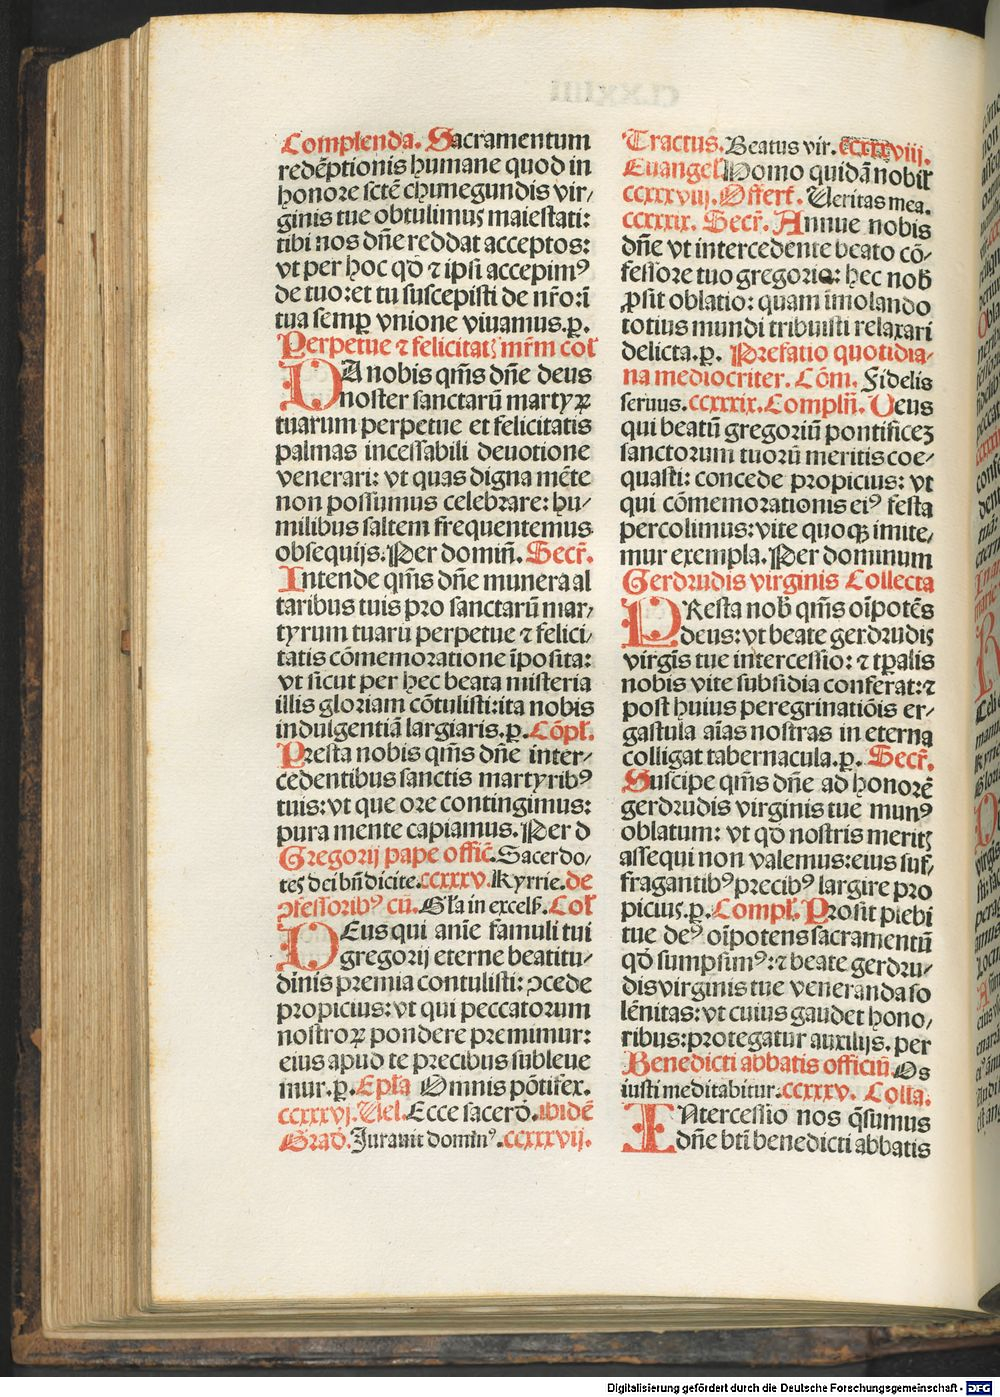 Complenda. Sacramentum
redēptionis humane quod in
honore sctē chunegundis vir⸗
ginis tue obtulimus maiestati:
tibi nos dn̄e reddat acceptos:
vt per hoc qd̄ ⁊ ipsi accepimꝰ
de tuo: et tu suscepisti de nr̄o: ī
tua semꝑ vnione viuamus. ꝑ.
Perpetue ⁊ felicitatꝭ mr̄m col̄
DA nobis qm̄s dn̄e deus
noster sanctarū martyꝝ
tuarum perpetue et felicitatis
palmas incessabili deuotione
venerari: vt quas digna mēte
non possumus celebrare: hu⸗
milibus saltem frequentemus
obsequijs. Per domin̄. Secr̄.
Intende qm̄s dn̄e munera al
taribus tuis pro sanctarū mar⸗
tyrum tuarū perpetue ⁊ felici⸗
tatis cōmemoratione īposita:
vt sicut per hec beata misteria
illis gloriam cōtulisti: ita nobis
indulgentiā largiaris. ꝑ. Cōpl̄.
Presta nobis qm̄s dn̄e inter⸗
cedentibus sanctis martyribꝰ
tuis: vt que ore contingimus:
pura mente capiamus. Per d
Gregorij pape offic̄. Sacerdo⸗
tes dei bn̄dicite. ccxxxv. Kyrrie. de
ↄfessoribꝰ cū. Gl̄a in excels̄. Col̄
DEus qui anīe famuli tui
gregorij eterne beatitu⸗
dīnis premia contulisti: ↄcede
propicius: vt qui peccatorum
nostroꝝ pondere premimur:
eius apud te precibus subleue
mur. ꝑ. Epl̄a Omnis pōtifex.
ccxxxvj. Uel. Ecce sacerd̄. ibidē
Grad̄. Jurauit dominꝰ. ccxxxvij.
Tractus. Beatus vir. ccxxxviij.
Euangel̄ Homo quidā nobil̄
ccxxxviij. Offert̄. Ueritas mea.
ccxxxix. Secr̄. Annue nobis
dn̄e vt intercedente beato cō⸗
fessore tuo gregorio: hec nob̄
ꝓsit oblatio: quam īmolando
totius mundi tribuisti relaxari
delicta. ꝑ. Prefatio quotidia⸗
na mediocriter. Cōm. Fidelis
seruus. ccxxxix. Compln̄. Deus
qui beatū gregoriū pontificeꝫ
sanctorum tuorū meritis coe⸗
quasti: concede propicius: vt
qui cōmemorationis eiꝰ festa
percolimus: vite quoqꝫ imite⸗
mur exempla. Per dominum
Gerdrudis virginis Collecta
PResta nob̄ qm̄s oīpotēs
deus: vt beate gerdrudis
virgīs tue intercessio: ⁊ tꝑalis
nobis vite subsidia conferat: ⁊
post huius peregrinatiōis er⸗
gastula aīas nostras in eterna
colligat tabernacula. ꝑ. Secr̄.
Suscipe qm̄s dn̄e ad honorē
gerdrudis virginis tue munꝰ
oblatum: vt qd̄ nostris meritꝭ
assequi non valemus: eius suf⸗
fragantibꝰ precibꝰ largire pro
picius. ꝑ. Compl̄. Prosit plebi
tue deꝰ oīpotens sacramentū
qd̄ sumpsimꝰ: ⁊ beate gerdru⸗
dis virginis tue veneranda so
lēnitas: vt cuius gaudet hono⸗
ribus: protegatur auxilijs. per
Benedicti abbatis officiū. Os
iusti meditabitur. ccxxxv. Colla.
INtercessio nos q̄sumus
dn̄e bt̄i benedicti abbatis
Digitalisierung gefördert durch die Deutsche Forschungsgemeinschaft - DFG